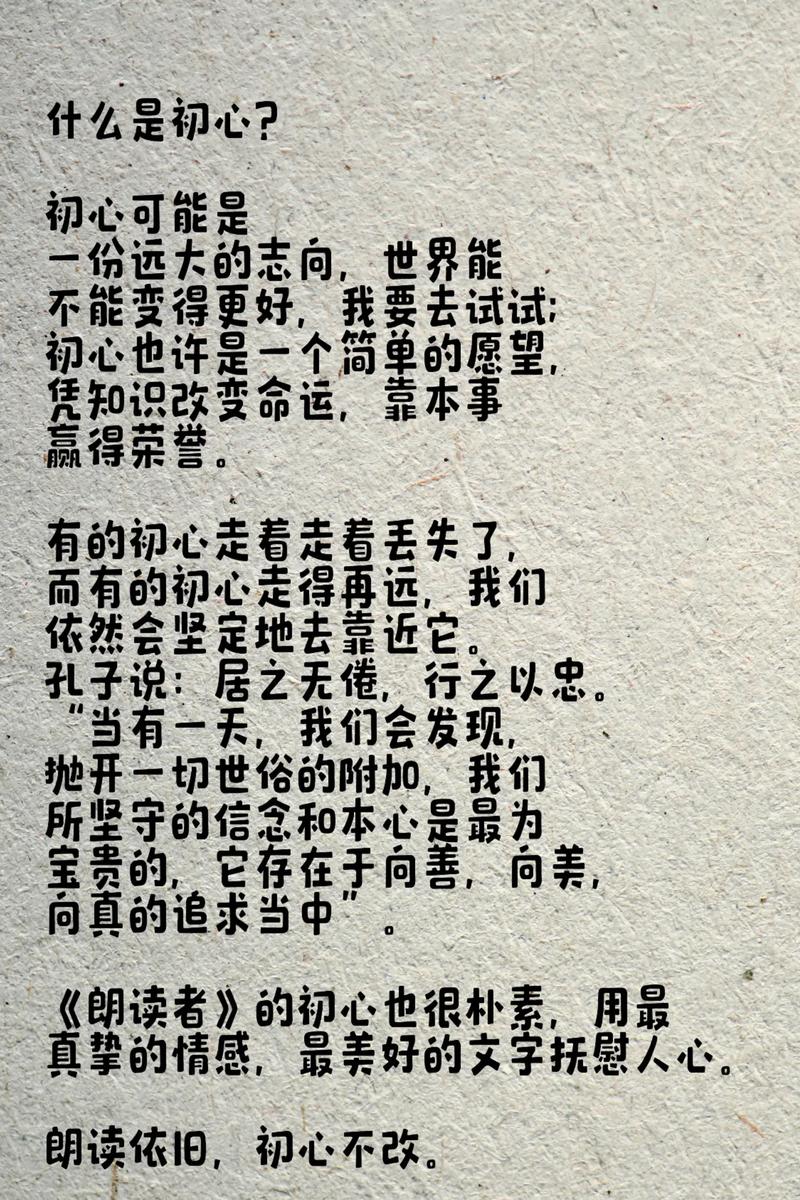 什么是初心?
初心可能是
一份远大的志向, 世界能
不能变得更好, 我要去试试;
初心也许是一个简单的愿望,
凭知识改变命运, 靠本事
赢得荣誉。
有的初心走着走着丢失了,
而有的初心走得再远, 我们
依然会坚定地去靠近它。
孔子说: 居之无倦, 行之以忠。
“当有一天, 我们会发现,
抛开一切世俗的附加, 我们
所坚守的信念和本心是最为
宝贵的, 它存在于向善, 向美,
向真的追求当中”。
《朗读者》的初心也很朴素, 用最
真挚的情感, 最美好的文字抚慰人心。
朗读依旧, 初心不改。